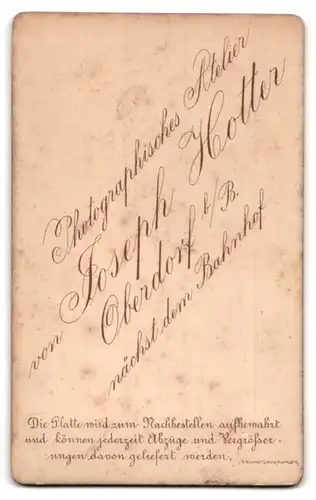 Photographisches Atelier
von Joseph Hotter
Oberdorf b/B.
nächst dem Bahnhof
Die Platte wird zum Nachbestellen aufbewahrt
und können jederzeit Abzüge und Vergrösser-
ungen davon geliefert werden.